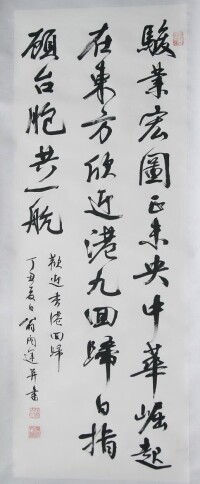 駿業宏圖正未央中華崛起
在東方欣迎港九回歸日指
顧台胞共一航
歡迎香港回歸
丁丑夏日翁闓運并書